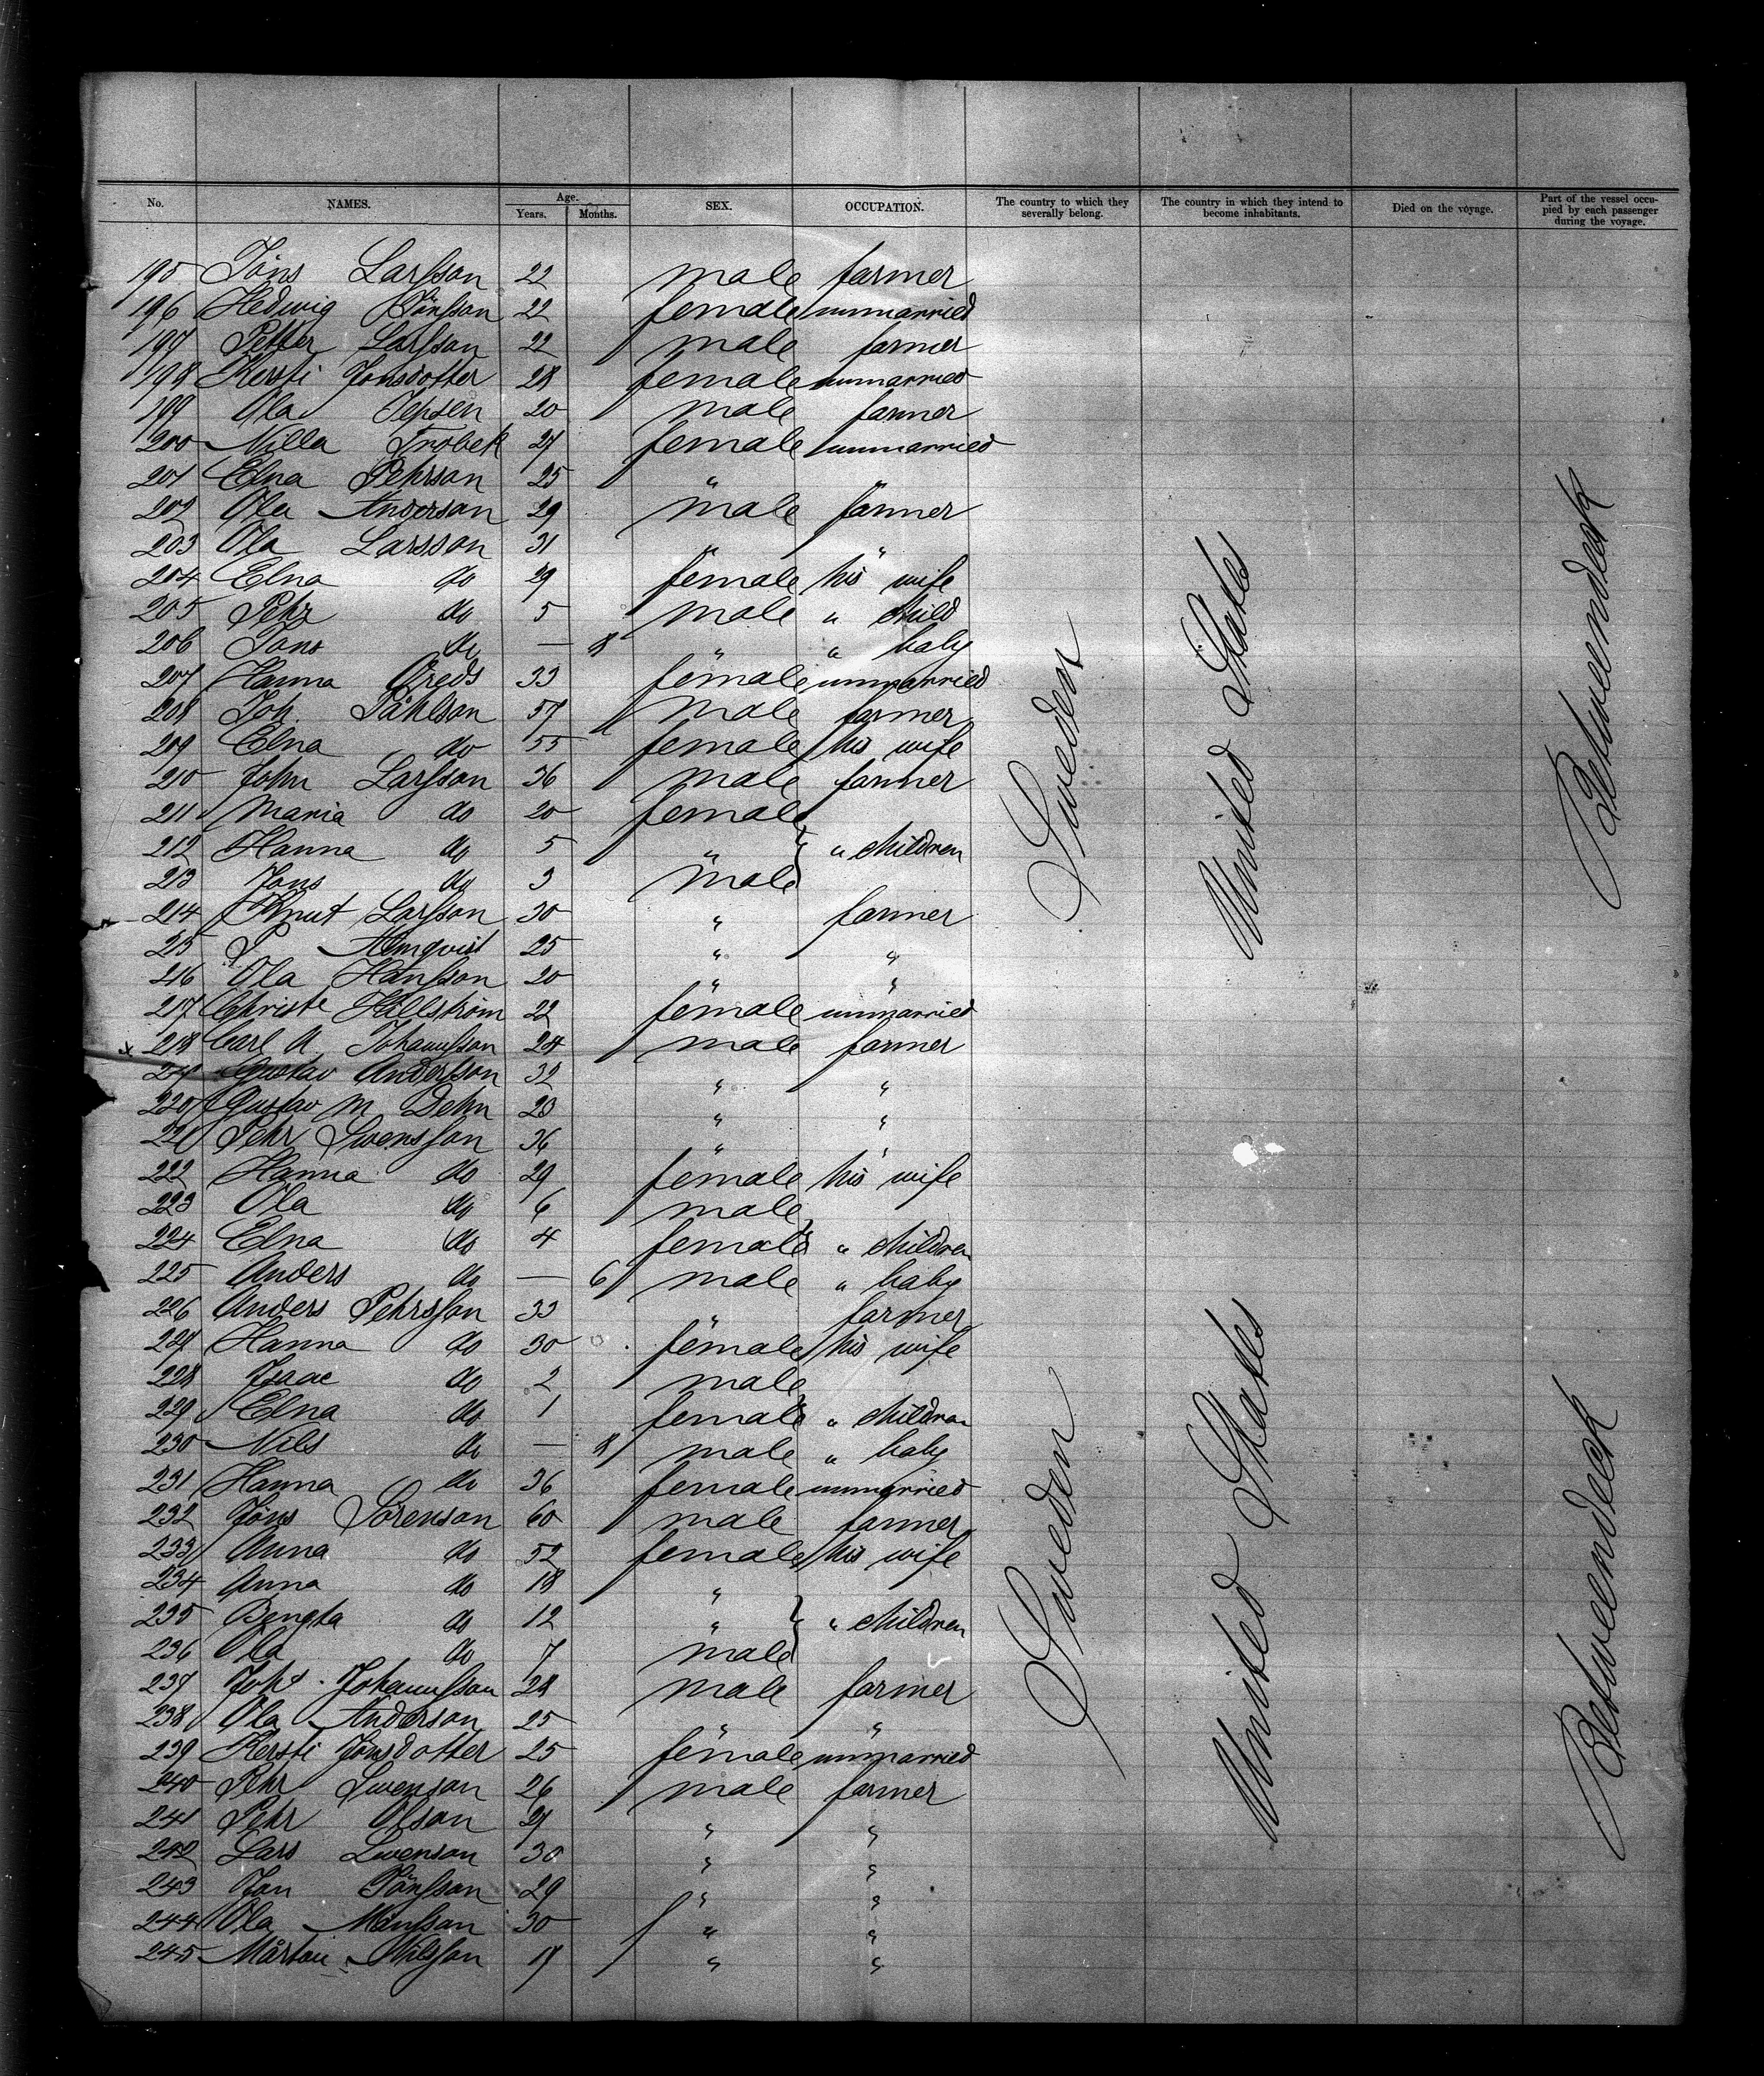 No. NAMES. Age. Years. Months. SEX. OCCUPATION. The country to which they severally belong. The country in which they intend to become inhabitants. Died on the voyage. Part of the vessel occupied by each passenger during the voyage.
195 Jöns Larsson 22 male farmer
196 Hedwig Jönsson 22 female unmarried
197 Petter Larsson 22 male farmer
198 Kersti Jonsdotter 28 female unmarried
199 Ola Jepsen 20 male farmer
200 Nilla Trobek 27 female unmarried
201 Elna Pehrson 25 " "
202 Ola Anderson 29 male farmer
203 Ola Larsson 31 " "
204 Elna do 29 female his wife
205 Pehr do 5 male " child
206 Jöns do — 8 " " baby
207 Hanna 33 female unmarried
208 Joh. Påhlson 57 male farmer
209 Elna do 55 female his wife
210 John Larsson 36 male farmer
211 Maria do 20 female
212 Hanna do 5 " " children
213 Jöns do 3 male
214 Knut Larsson 30 " farmer
215 P Almqvist 25 " "
216 Ola Hansson 20 " "
217 Christe Hällström 22 female unmarried
218 Carl A Johannsson 24 male farmer
219 Gustav Andersson 32 " "
220 Gustav M Dehn 23 " "
221 Pehr Swensson 36 " "
222 Hanna do 29 female his wife
223 Ola do 6 male
224 Elna do 4 female " children
225 Anders do — 6 male " baby
226 Anders Pehrsson 33 " farmer
227 Hanna do 30 female his wife
228 Isaac do 2 male
229 Elna do 1 female " children
230 Nils do — 8 male " baby
231 Hanna do 36 female unmarried
232 Jöns Sörenson 60 male farmer
233 Anna do 52 female his wife
234 Anna do 18 "
235 Bengta do 12 " " children
236 Ola do 7 male
237 Johannsson 28 male farmer
238 Ola Anderson 25 " "
239 Kersti Jönsdotter 25 female unmarried
240 Pehr Swenson 26 male farmer
241 Pehr Olson 21 " "
242 Lars Swenson 30 " "
243 Jon Jönsson 29 " "
244 Ola Månsson 30 " "
245 Mårten Nilsson 17 " "
Sweden
United States
Betweendeck
Sweden
United States
Betweendeck